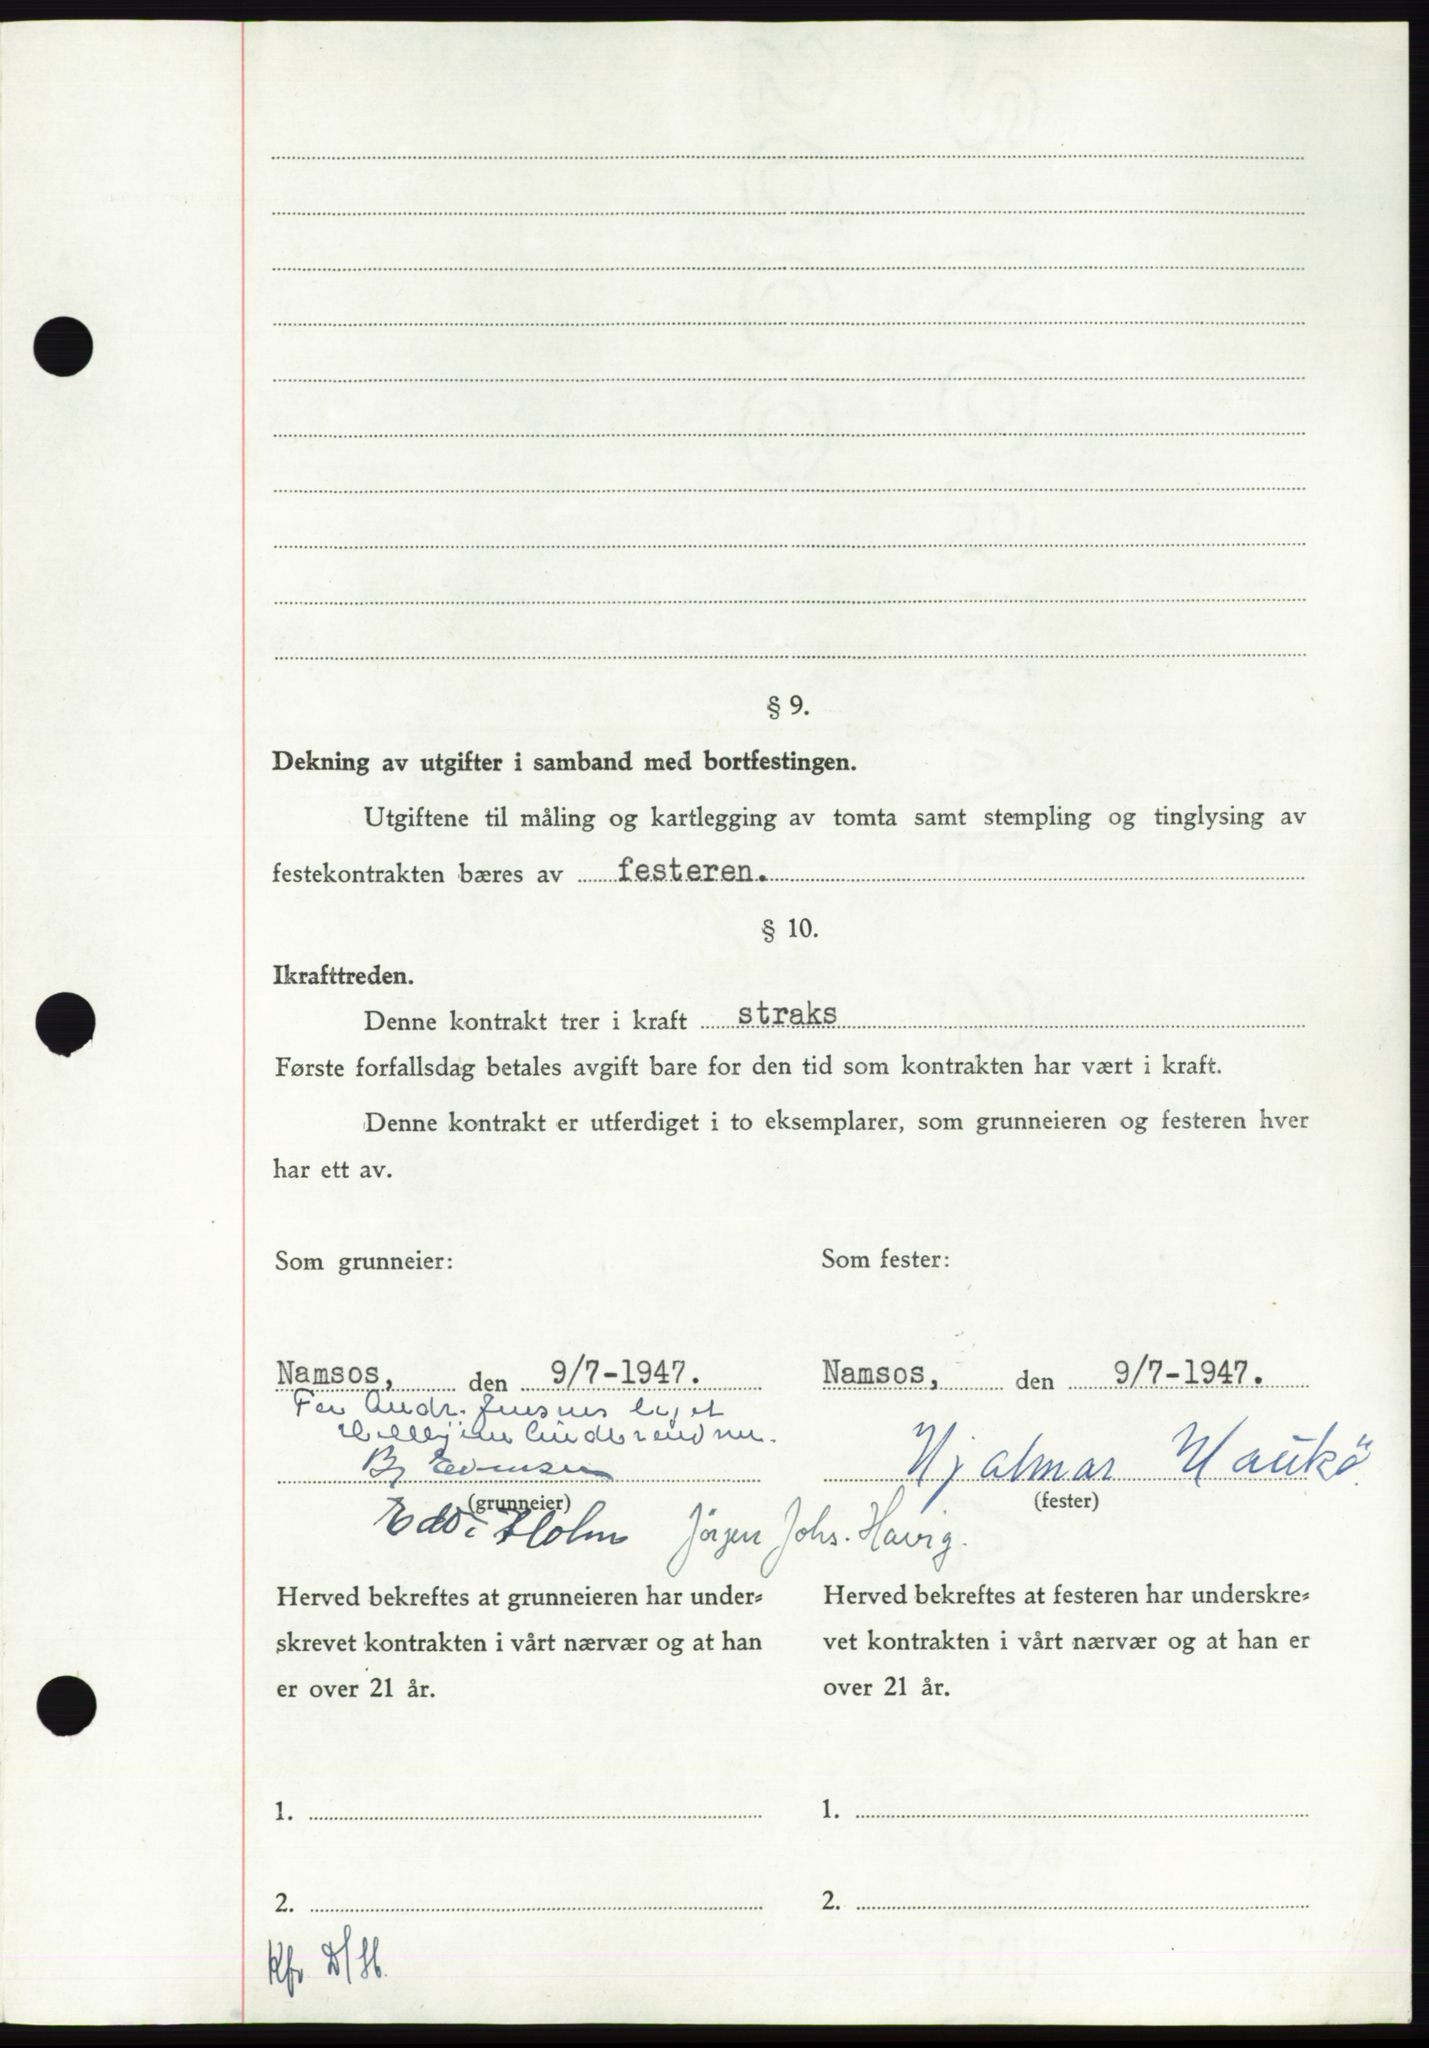 § 9.
Dekning av utgifter i samband med bortfestingen.
Utgiftene til måling og kartlegging av tomta samt stempling og tinglysing av
festekontrakten bæres av festeren.
§ 10.
Ikrafttreden.
Denne kontrakt trer i kraft straks
Første forfallsdag betales avgift bare for den tid som kontrakten har vært i kraft.
Denne kontrakt er utferdiget i to eksemplarer, som grunneieren og festeren hver
har ett av.
Som grunneier:
Som fester:
Namsos, den 9/7-1947.
Namsos, den 9/7-1947.
Andr. Jensens
Hjalmar Haukö
(grunneier)
(fester)
Holm
Jörgen Johs. Havig.
Herved bekreftes at grunneieren har under-
skrevet kontrakten i vårt nærvær og at han
er over 21 år.
Herved bekreftes at festeren har underskre-
vet kontrakten i vårt nærvær og at han er
over 21 år.
1.
1.
2.
2.